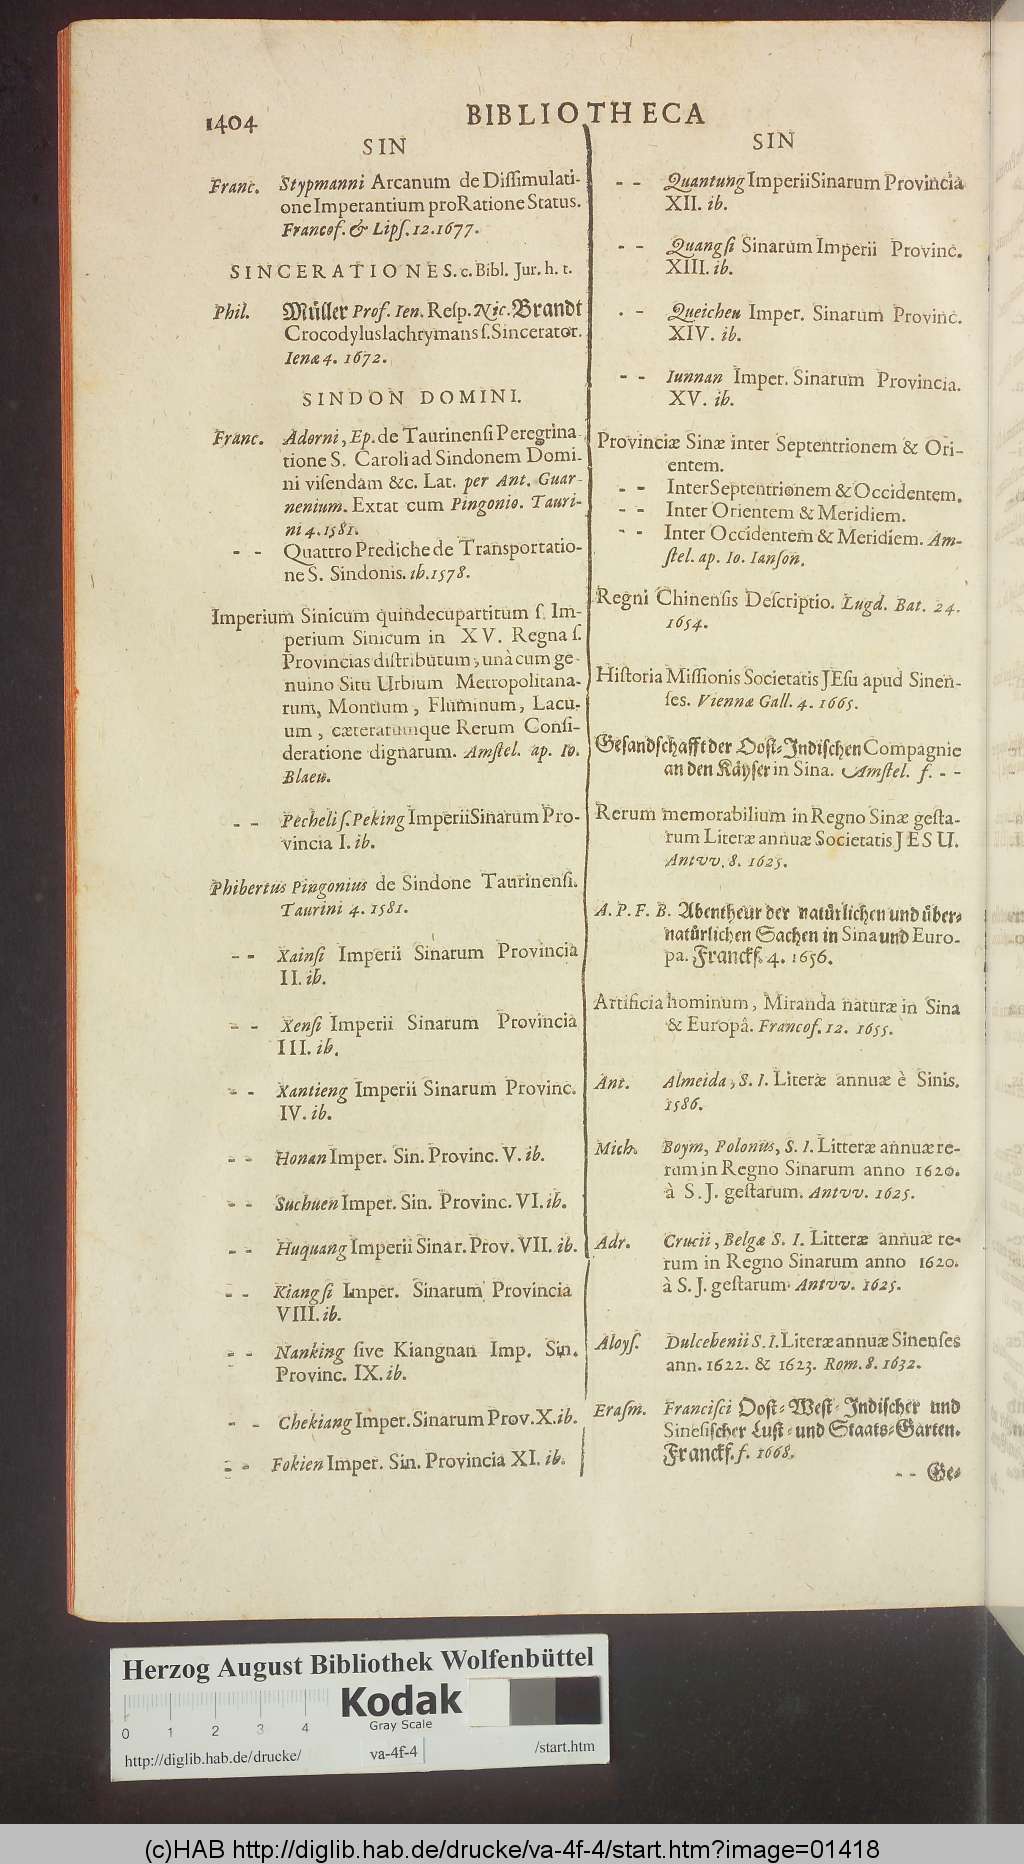 1404
BIBLIOTHECA
SIN
Franc. Stypmanni Arcanum de Diſſimulati-
one Imperantium pro Ratione Status.
Francof. & Lipſ. 12. 1677.
SINCERATIONES. c. Bibl. Jur. h. t.
Phil. Müller Prof. Ien. Reſp. Nic. Brandt
Crocodylus lachrymans ſ. Sincerator.
Ienæ 4. 1672.
SINDON DOMINI.
Franc. Adorni, Ep. de Taurinenſi Peregrina
tione S. Caroli ad Sindonem Domi-
ni viſendam &c. Lat. per Ant. Guar-
nenium. Extat cum Pingonio. Tauri-
ni 4. 1581.
- - Quattro Prediche de Transportatio-
ne S. Sindonis. ib. 1578.
Imperium Sinicum quindecupartitum ſ. Im-
perium Sinicum in XV. Regna ſ.
Provincias diſtributum, unà cum ge-
nuino Situ Urbium Metropolitana-
rum, Montium, Fluminum, Lacu-
um, cæterarumque Rerum Conſi-
deratione dignarum. Amſtel. ap. Io.
Blaeu.
- - Pecheli ſ. Peking Imperii Sinarum Pro-
vincia I. ib.
Phibertus Pingonius de Sindone Taurinenſi.
Taurini 4. 1581.
- - Xainſi Imperii Sinarum Provincia
II. ib.
- - Xenſi Imperii Sinarum Provincia
III. ib.
- - Xantieng Imperii Sinarum Provinc.
IV. ib.
- - Honan Imper. Sin. Provinc. V. ib.
- - Suchuen Imper. Sin. Provinc. VI. ib.
- - Huquang Imperii Sinar. Prov. VII. ib.
- - Kiangſi Imper. Sinarum Provincia
VIII. ib.
- - Nanking ſive Kiangnan Imp. Sin.
Provinc. IX. ib.
- - Chekiang Imper. Sinarum Prov. X. ib.
- - Fokien Imper. Sin. Provincia XI. ib.
SIN
- - Quantung Imperii Sinarum Provincia
XII. ib.
- - Quangſi Sinarum Imperii Provinc.
XIII. ib.
- - Queicheu Imper. Sinarum Provinc.
XIV. ib.
- - Iunnan Imper. Sinarum Provincia.
XV. ib.
Provinciæ Sinæ inter Septentrionem & Ori-
entem.
- - Inter Septentrionem & Occidentem.
- - Inter Orientem & Meridiem.
- - Inter Occidentem & Meridiem. Am-
ſtel. ap. Io. Ianſon.
Regni Chinenſis Deſcriptio. Lugd. Bat. 24.
1654.
Hiſtoria Miſſionis Societatis JEſu apud Sinen-
ſes. Viennæ Gall. 4. 1665.
Geſandſchafft der Ooſt-Indiſchen Compagnie
an den Käyſer in Sina. Amſtel. f. - -
Rerum memorabilium in Regno Sinæ geſta-
rum Literæ annuæ Societatis JESU.
Antvv. 8. 1625.
A. P. F. B. Abentheur der natürlichen und über-
natürlichen Sachen in Sina und Euro-
pa. Franckf. 4. 1656.
Artificia hominum, Miranda naturæ in Sina
& Europâ. Francof. 12. 1655.
Ant. Almeida, S. I. Literæ annuæ è Sinis.
1586.
Mich. Boym, Polonus, S. I. Litteræ annuæ re-
rum in Regno Sinarum anno 1620.
à S. J. geſtarum. Antvv. 1625.
Adr. Crucii, Belgæ S. I. Litteræ annuæ re-
rum in Regno Sinarum anno 1620.
à S. J. geſtarum. Antvv. 1625.
Aloyſ. Dulcebenii S. I. Literæ annuæ Sinenſes
ann. 1622. & 1623. Rom. 8. 1632.
Eraſm. Franciſci Ooſt-Weſt-Indiſcher und
Sineſiſcher Luſt- und Staats-Garten.
Franckf. f. 1668.
- - Ge-
Herzog August Bibliothek Wolfenbüttel
Kodak
Gray Scale
0 1 2 3 4
http://diglib.hab.de/drucke/ va-4f-4 /start.htm
(c)HAB http://diglib.hab.de/drucke/va-4f-4/start.htm?image=01418